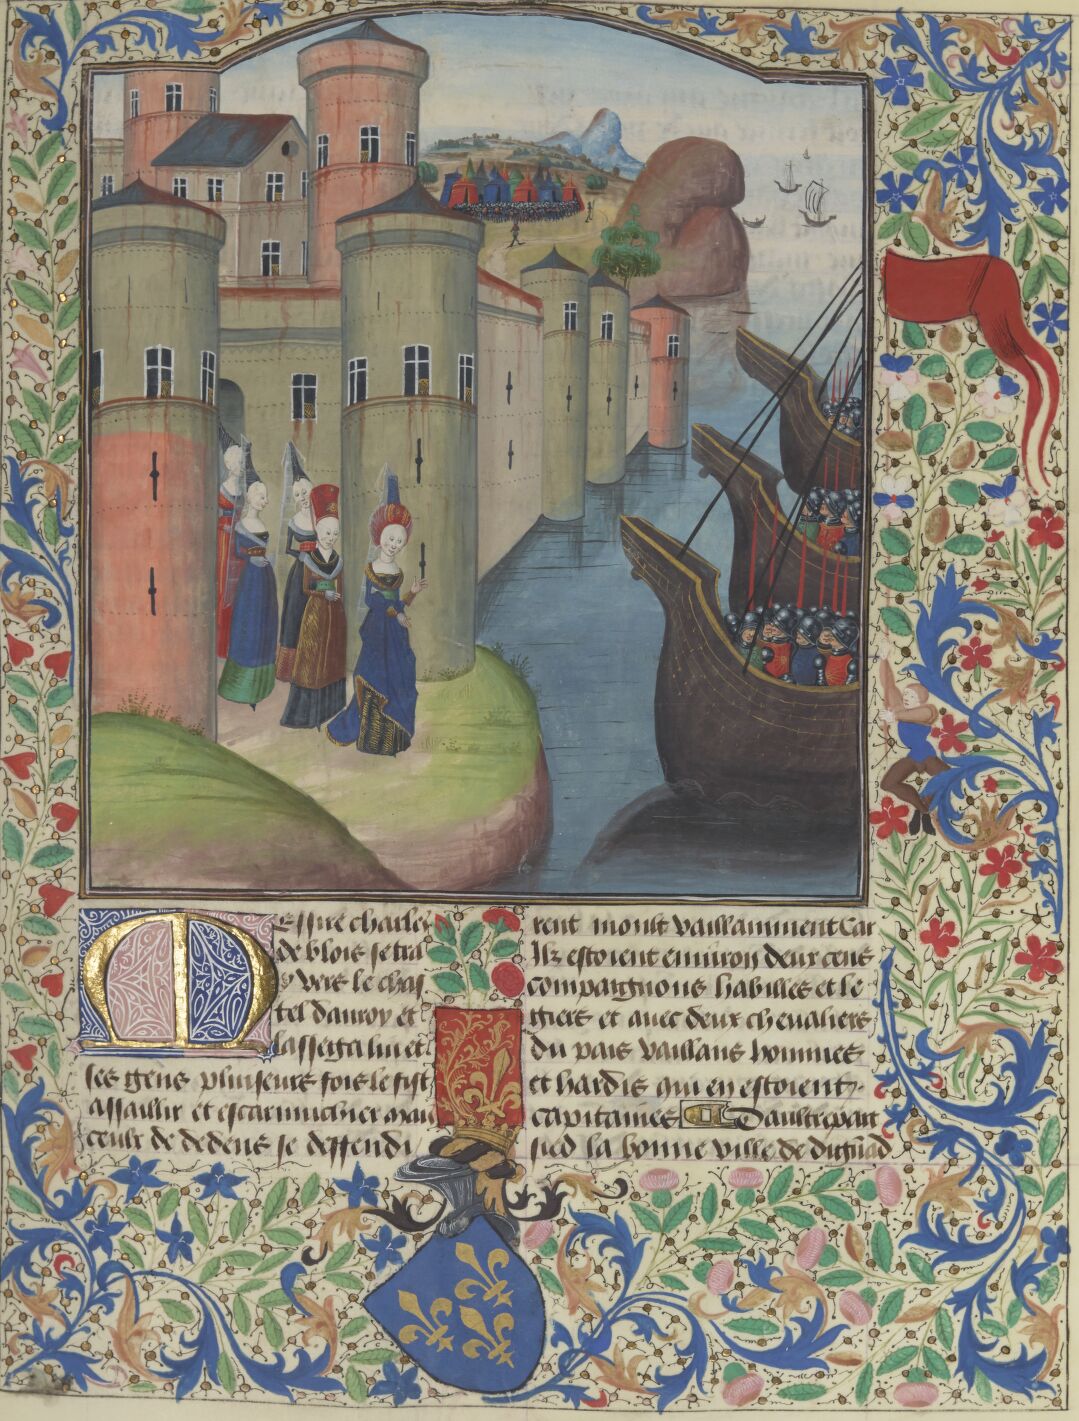 Messire charles
de blois se tra
y vers le chas
tel dauroy et
lassega lui et
ses gens pluiseurs fois le fist
assaillir et escarmuchier mais
ceulx de dedens se deffendi
rent moult vaillamment Car
Ilz estoient enuiron deux cens
compaignons habilles et le
giers et auec deux cheualiers
du pais vaillans hommes
et hardis qui en estoient
capitaines Daultrepart
sied la bonne ville de dignad